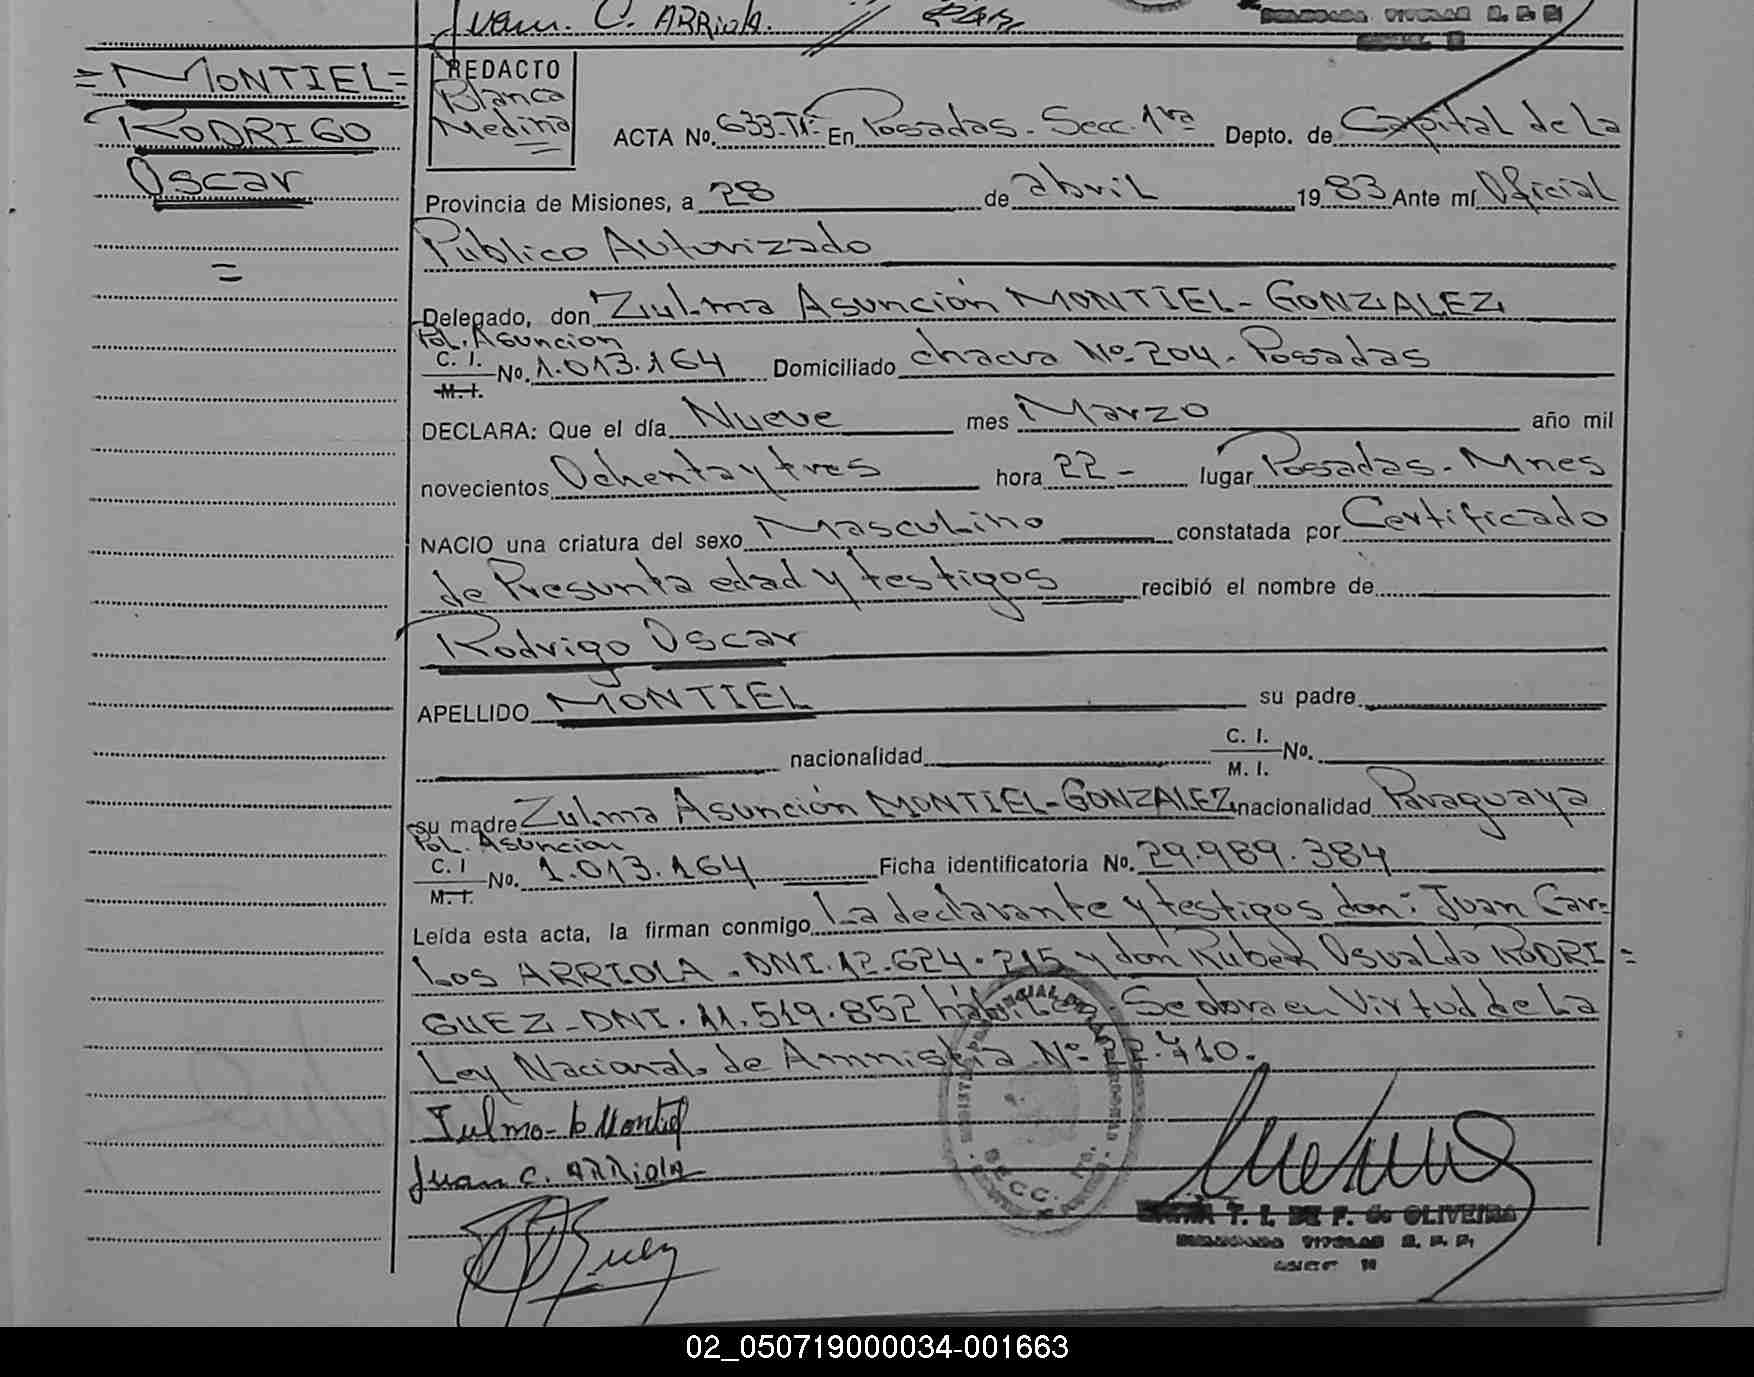 Juan. C. ARRiola.
= MONTIEL =
RODRIGO
Oscar
=
REDACTO
Blanca
Medina
ACTA No. 633-Tº- En Posadas - Secc. 1ra Depto. de Capital de la
Provincia de Misiones, a 28 de abril 1983 Ante mí Oficial
Publico Autorizado
Delegado, don Zulma Asunción MONTIEL - GONZALEZ
Pol. Asuncion
C. I.
M. I. No. 1.013.164 Domiciliado chacra Nº 204 - Posadas
DECLARA: Que el día Nueve mes Marzo año mil
novecientos Ochenta y tres hora 22 - lugar Posadas - Mnes
NACIO una criatura del sexo Masculino constatada por Certificado
de Presunta edad y testigos recibió el nombre de
Rodrigo Oscar
APELLIDO MONTIEL su padre
nacionalidad C. I.
M. I. No.
su madre Zulma Asunción MONTIEL - GONZALEZ nacionalidad Paraguaya
Pol. Asuncion
C. I
M. I. No. 1.013.164 Ficha identificatoria No. 29.989.384
Leída esta acta, la firman conmigo La declarante y testigos don: Juan Car-
los ARRIOLA. DNI. 12.624.215 y don Ruben Osvaldo RODRI =
GUEZ - DNI. 11.519.852 hábiles Se labra en Virtud de la
Ley Nacional de Amnistia Nº 22.710.
Zulma - G Montiel
Juan C. ARRiola
SECC. 1ra.
T. I. DE F. de OLIVEIRA
02_050719000034-001663